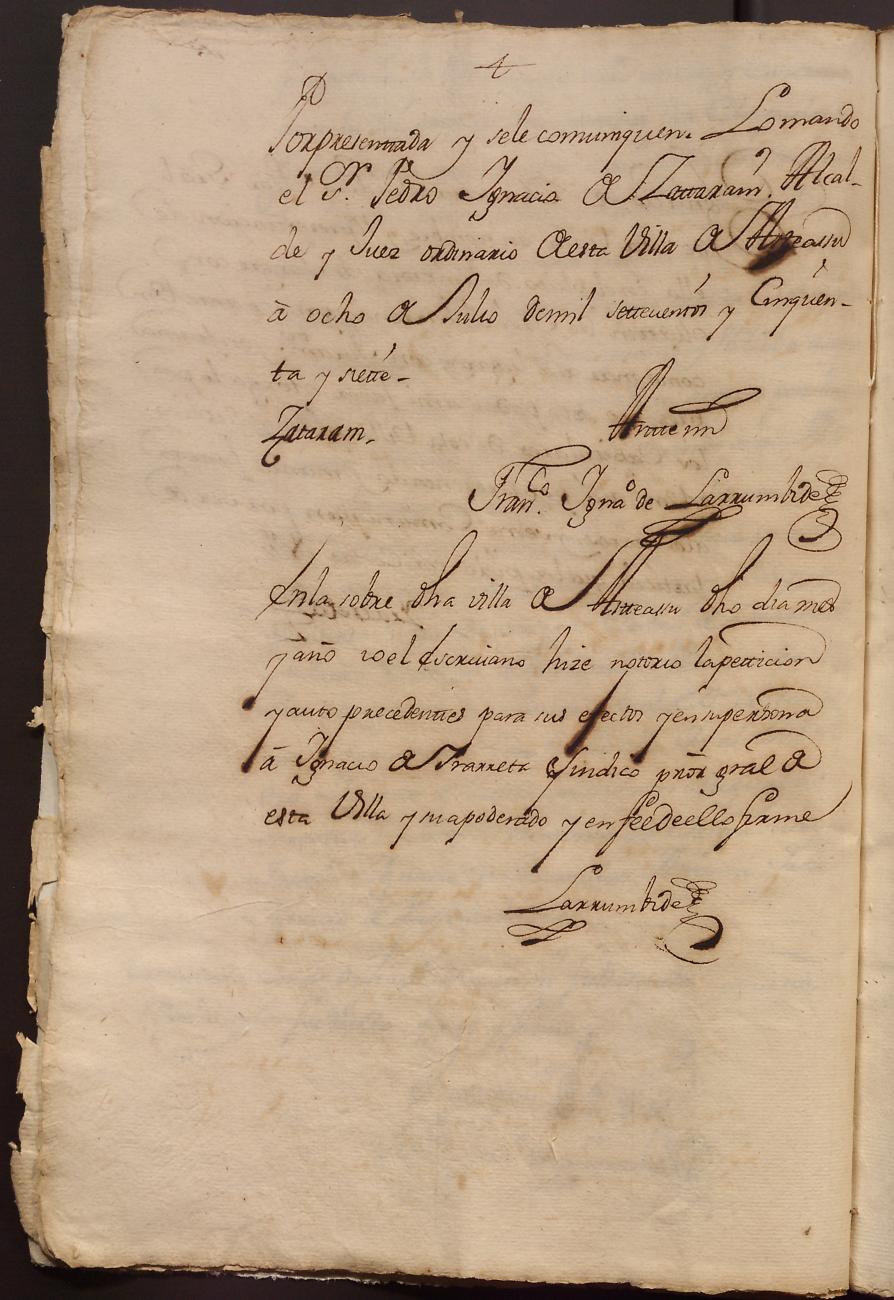 Porpresentada y sele comuniquen. Lo mando
el Sr. Pedro Ignacio de Zattarain, Alcal-
de y Juez ordinario de esta Villa de Astteassu
à ocho de Julio de mil settecientos y Cinquen-
ta y siette-
Zatarain.
Antte mi
Franco. Ignao de Larrumbide
En la sobre dha villa de Astteassu dho dia mes
y año io el Escriuano hize notorio la petticion
y auto precedenttes para sus efectos y en su persona
à Ignacio de Irarreta Sindico prõr gral de
esta Villa y su apoderado y en fee de ello firme
Larrumbide